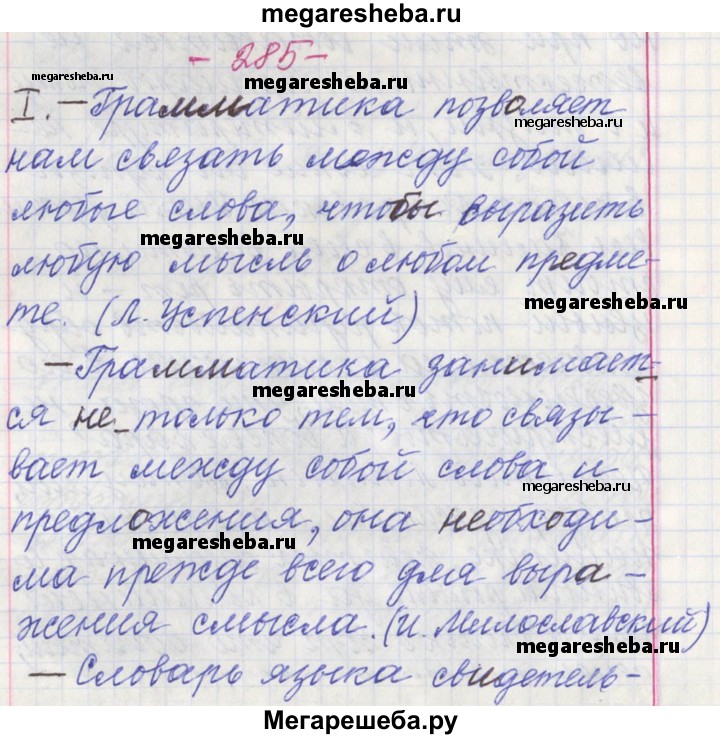 megaresheba.ru
- 285 -
megaresheba.ru
megaresheba.ru
I. - Грамматика позволяет
megaresheba.ru
нам связать между собой
любые слова, чтобы выразить
megaresheba.ru
любую мысль о любом предме-
megaresheba.ru
те. (Л. Успенский)
- Грамматика занимает-
megaresheba.ru
ся не только тем, что связы-
вает между собой слова и
megaresheba.ru
предложения, она необходи-
megaresheba.ru
ма прежде всего для выра-
жения смысла. (И. Милославский)
megaresheba.ru
- Словарь языка свидетель-
Мегарешеба.ру